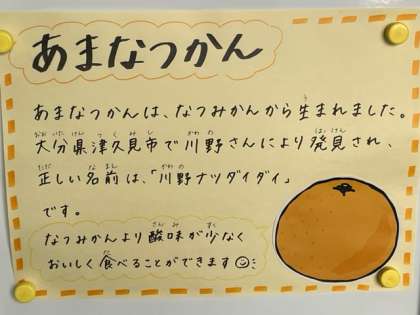 あまなつかん
あまなつかんは、なつみかんから生まれました。
大分県津久見市で川野さんにより発見され、
正しい名前は、「川野ナツダイダイ」
です。
なつみかんより酸味が少なく
おいしく食べることができます